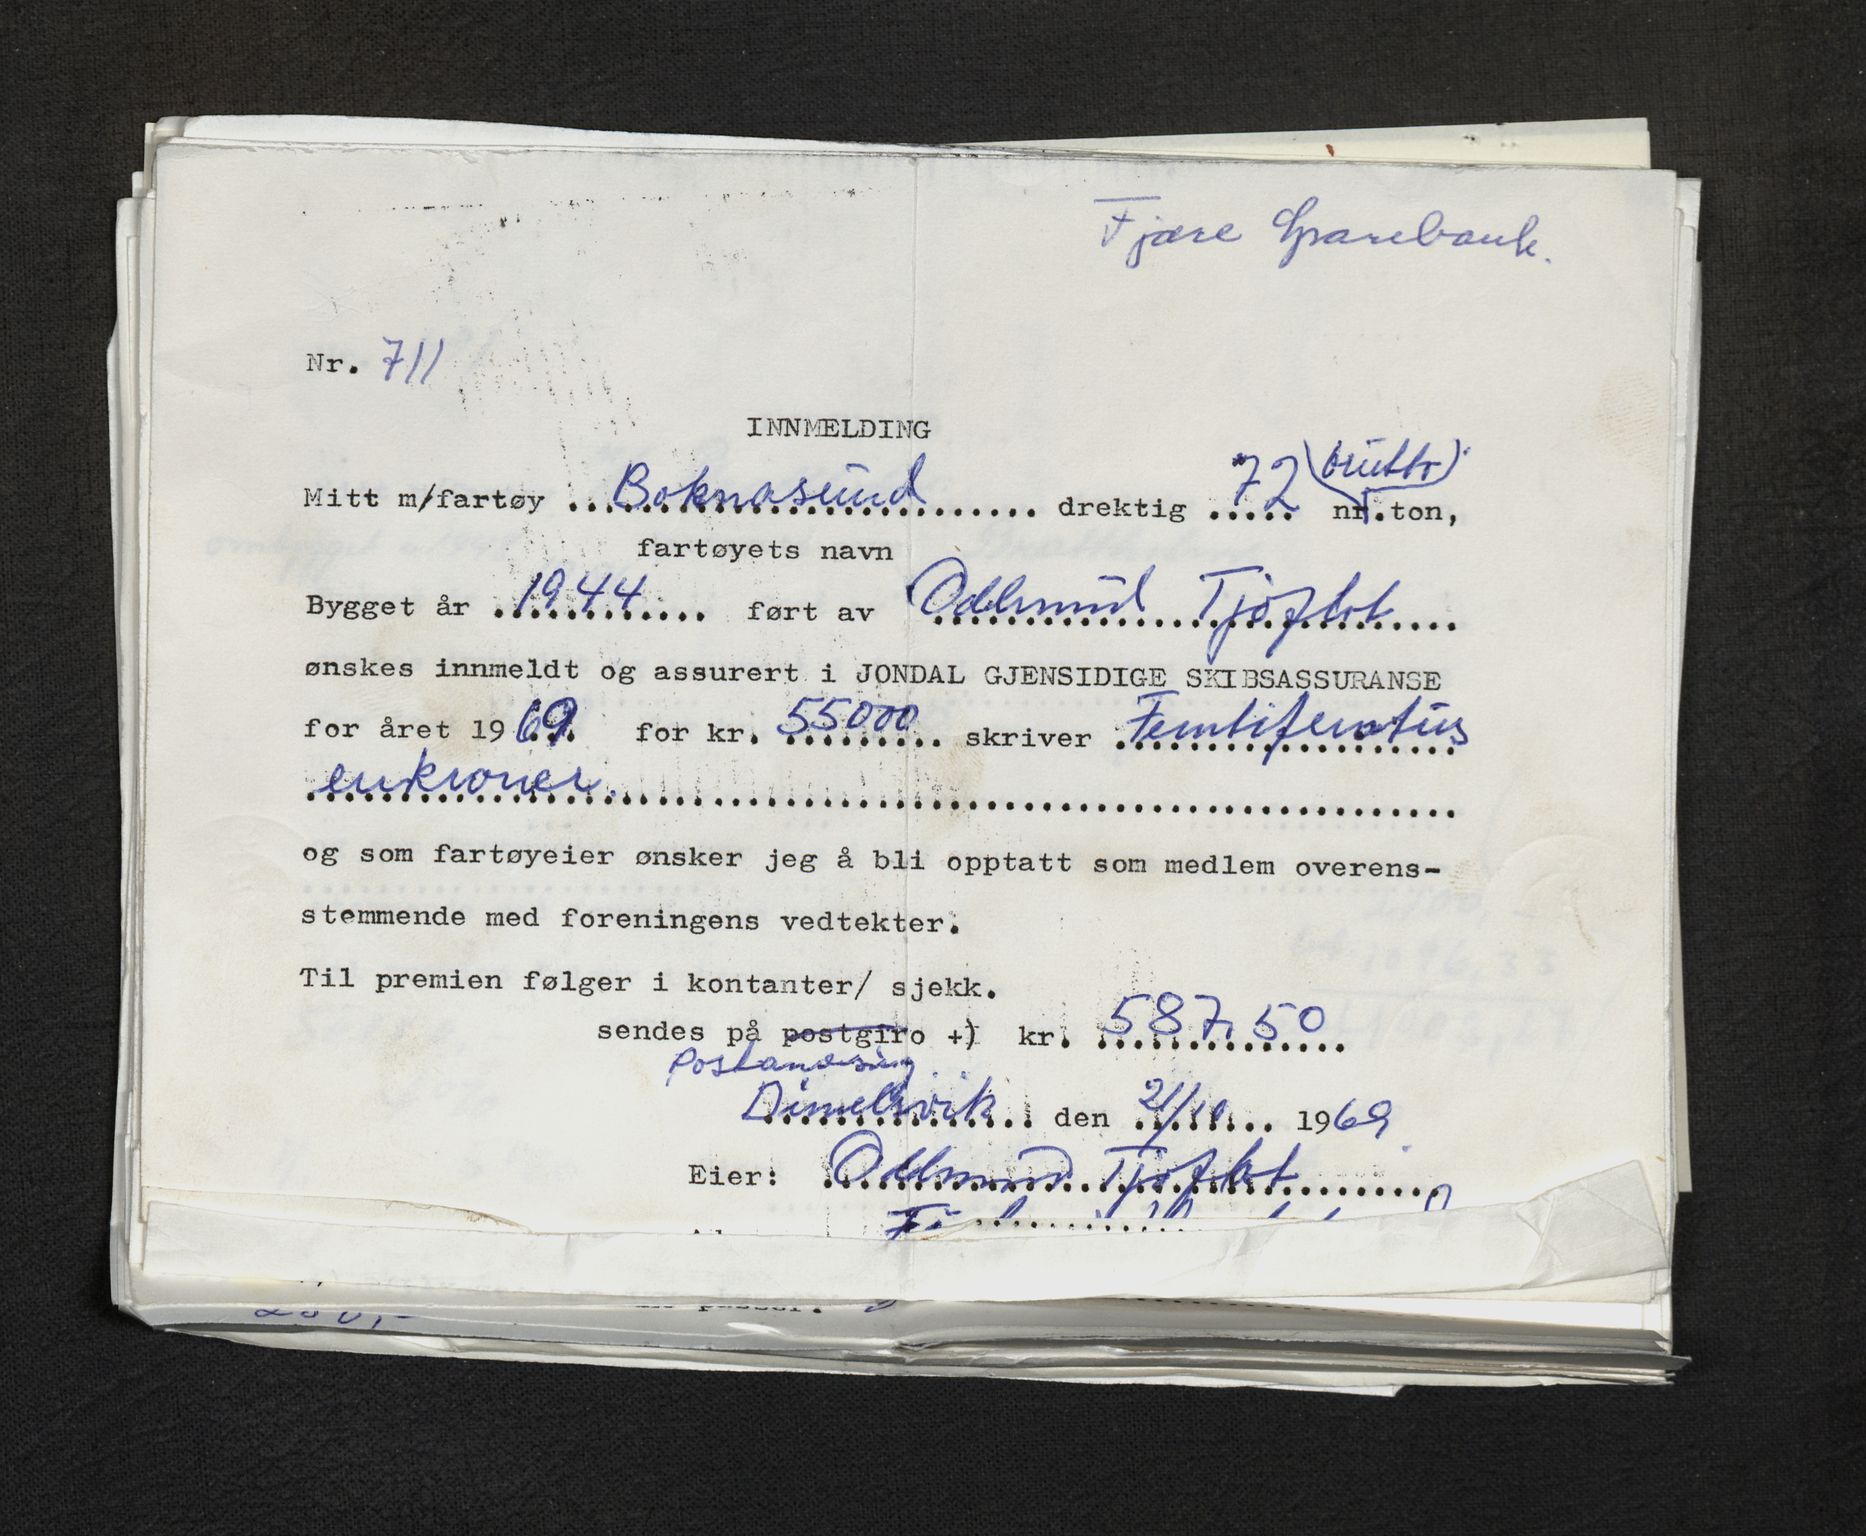 Fjære Sparebank.
Nr. 711
INNMELDING
Mitt m/fartøy ..Boknasund.......... drektig ..72 (brutto) nr.ton,
fartøyets navn
Bygget år .1944.... ført av Oddmund Tjoflot....
ønskes innmeldt og assurert i JONDAL GJENSIDIGE SKIBSASSURANSE
for året 1969 for kr. 55000.. skriver Femtifemtus
enkroner.
og som fartøyeier ønsker jeg å bli opptatt som medlem overens-
stemmende med foreningens vedtekter.
Til premien følger i kontanter/ sjekk.
sendes på postgiro +) kr. 587,50
Postanvising
Dimelsvik den 21/10 1969
Eier: Oddmund Tjoflot